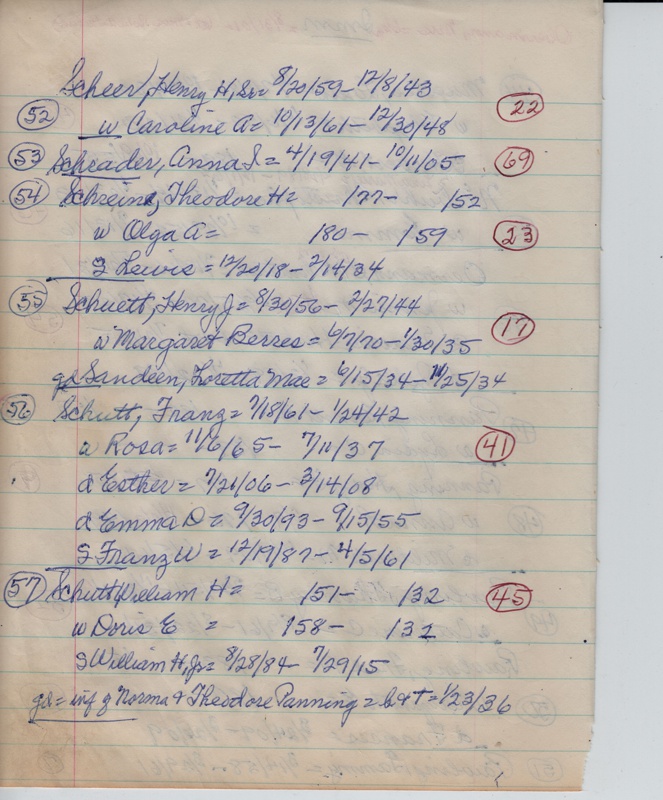 Scheer, Henry H, Sr = 8/20/59 - 12/8/43
52 w Caroline A = 10/13/61 - 12/30/48 22
53 Schrader, Anna S. = 4/19/41 - 10/11/05 69
54 Schreine, Theodore H = 177 - 152
w Olga A = 180 - 159 23
S Lewis = 12/20/18 - 2/14/34
55 Schuett, Henry J = 8/30/56 - 2/27/44
w Margaret Berres = 6/7/70 - 1/30/35 17
gd Sandeen, Loretta Mae = 6/15/34 - /25/34
56 Schutt, Franz = 7/18/61 - 1/24/42
w Rosa = 11/6/65 - 7/11/37 41
d Esther = 7/21/06 - 3/14/08
d Emma D = 9/30/93 - 9/15/55
S Franz W = 12/19/87 - 4/5/61
57 Schutt William H = 151 - 132 45
w Doris E = 158 - 132
S William H, Jr = 8/28/84 - 7/29/15
gd = inf of Norma & Theodore Panning = b & + = 1/23/36